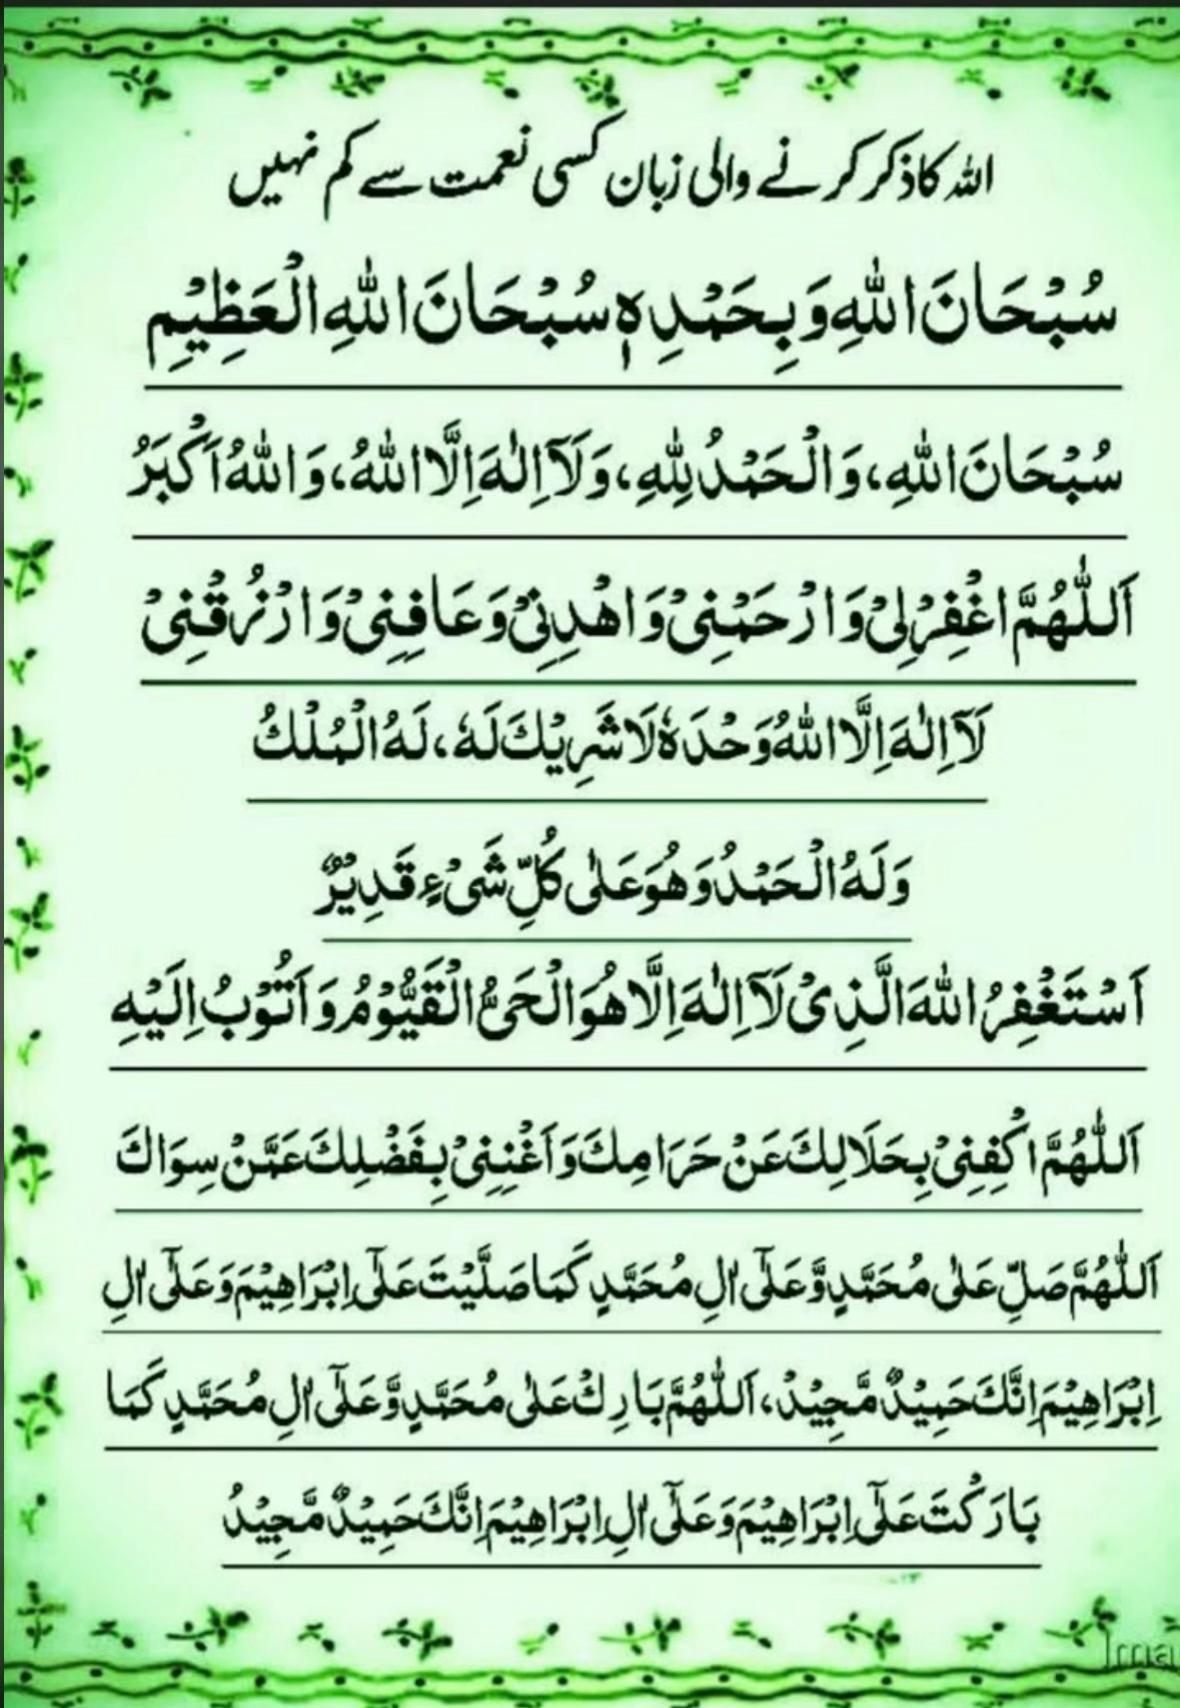 اللہ کا ذکر کرنے والی زبان کسی نعمت سے کم نہیں
سُبْحَانَ اللهِ وَبِحَمْدِهٖ سُبْحَانَ اللهِ الْعَظِيْمِ
سُبْحَانَ اللهِ، وَالْحَمْدُ لِلّٰهِ، وَلَآ اِلٰهَ اِلَّا اللهُ، وَاللهُ اَكْبَرُ
اَللّٰهُمَّ اغْفِرْلِىْ وَارْحَمْنِىْ وَاهْدِنِىْ وَعَافِنِىْ وَارْزُقْنِىْ
لَآ اِلٰهَ اِلَّا اللهُ وَحْدَهٗ لَا شَرِيْكَ لَهٗ، لَهُ الْمُلْكُ
وَلَهُ الْحَمْدُ وَهُوَ عَلٰى كُلِّ شَىْءٍ قَدِيْرٌ
اَسْتَغْفِرُ اللهَ الَّذِىْ لَآ اِلٰهَ اِلَّا هُوَ الْحَىُّ الْقَيُّوْمُ وَاَتُوْبُ اِلَيْهِ
اَللّٰهُمَّ اكْفِنِىْ بِحَلَالِكَ عَنْ حَرَامِكَ وَاَغْنِنِىْ بِفَضْلِكَ عَمَّنْ سِوَاكَ
اَللّٰهُمَّ صَلِّ عَلٰى مُحَمَّدٍ وَّعَلٰٓى اٰلِ مُحَمَّدٍ كَمَا صَلَّيْتَ عَلٰٓى اِبْرَاهِيْمَ وَعَلٰٓى اٰلِ
اِبْرَاهِيْمَ اِنَّكَ حَمِيْدٌ مَّجِيْدٌ، اَللّٰهُمَّ بَارِكْ عَلٰى مُحَمَّدٍ وَّعَلٰٓى اٰلِ مُحَمَّدٍ كَمَا
بَارَكْتَ عَلٰٓى اِبْرَاهِيْمَ وَعَلٰٓى اٰلِ اِبْرَاهِيْمَ اِنَّكَ حَمِيْدٌ مَّجِيْدٌ